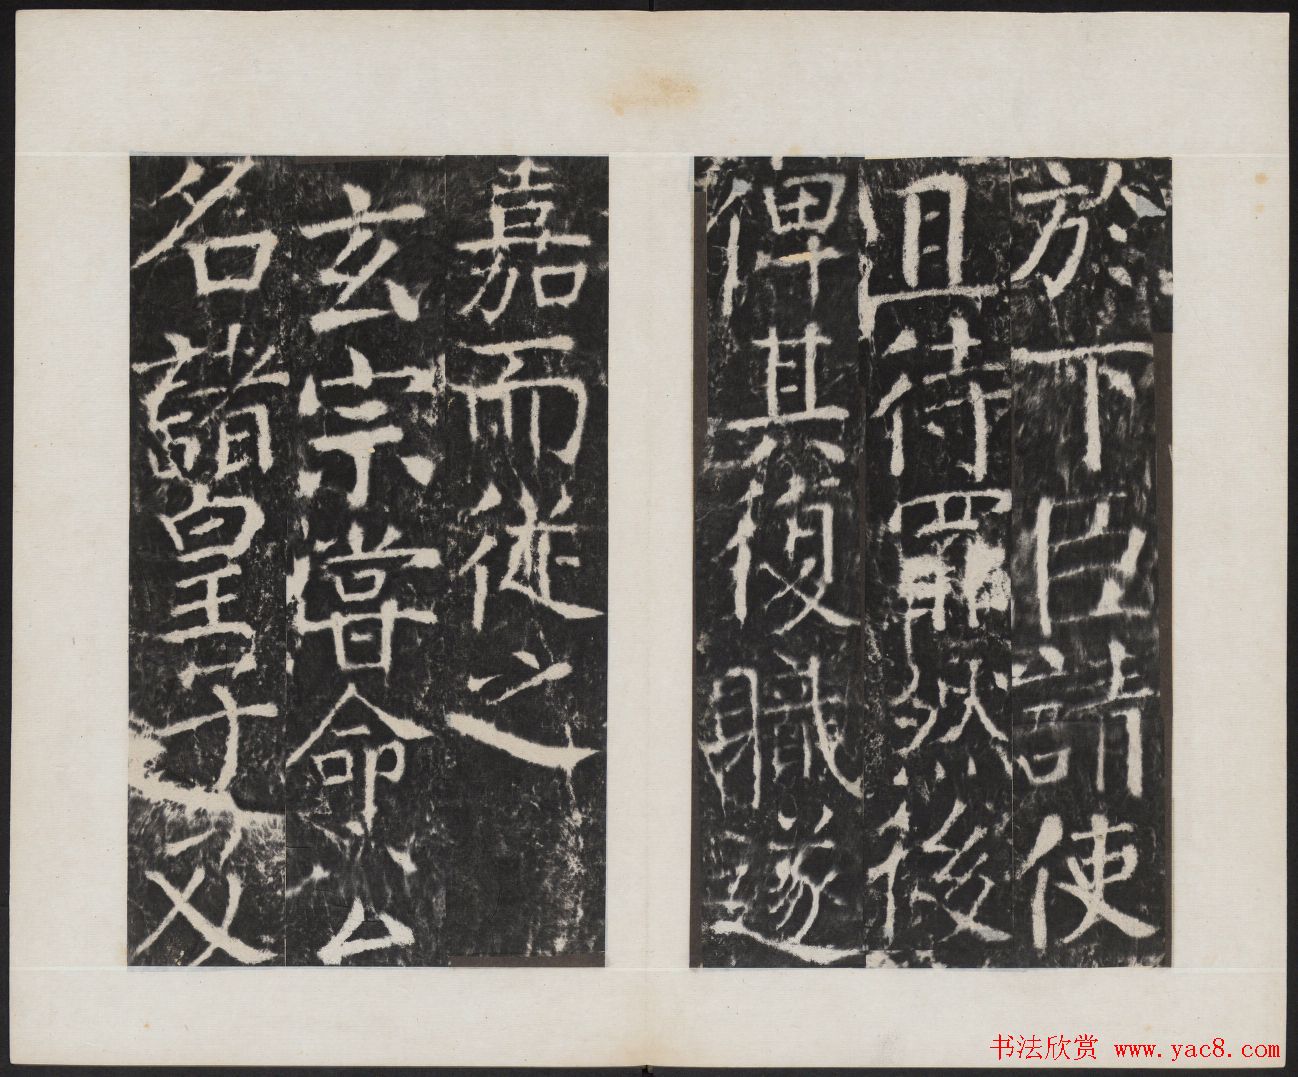 於下臣請使
且待罪然後
俾其復職遂
嘉而從之
玄宗嘗命公
名諸皇子及
书法欣赏 www.yac8.com